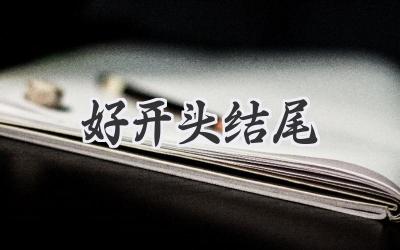 好开头结尾